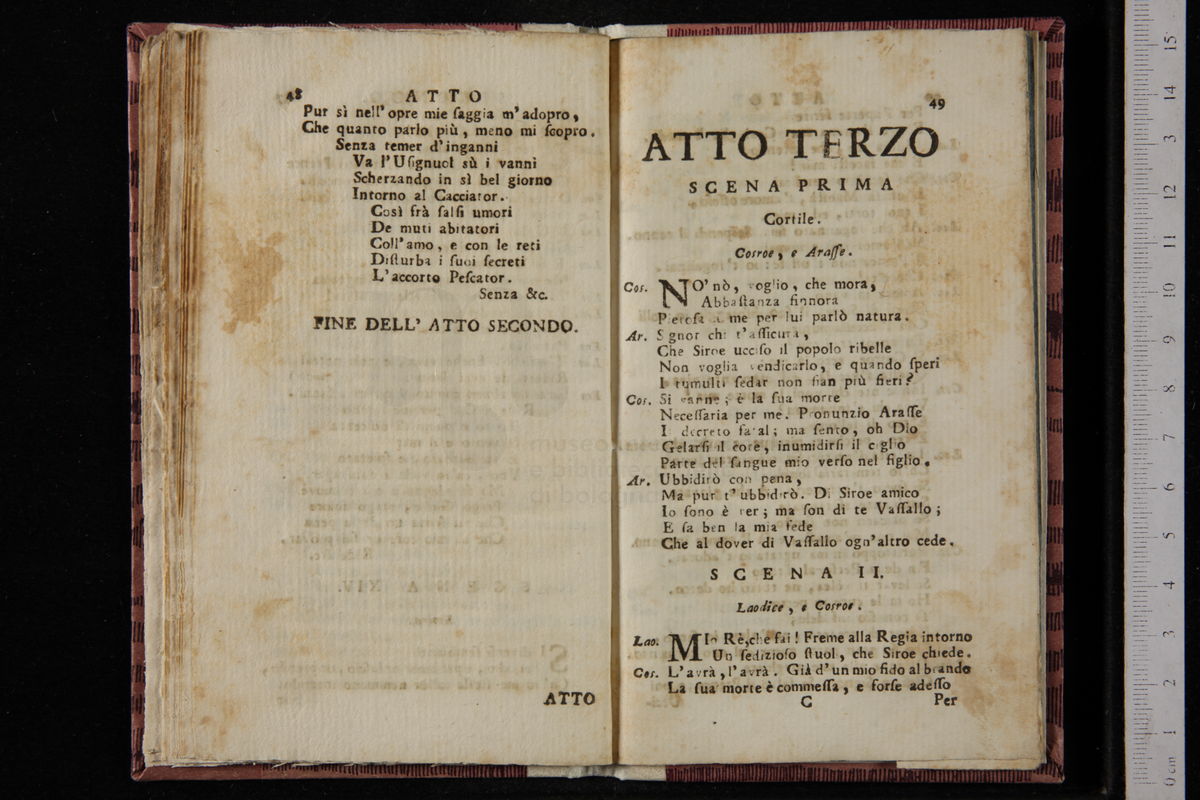 48 ATTO
Pur sì nell' opre mie ſaggia m' adopro,
Che quanto parlo più, meno mi ſcopro.
Senza temer d' inganni
Va l' Uſignuol sù i vanni
Scherzando in sì bel giorno
Intorno al Cacciator.
Così frà falſi umori
De muti abitatori
Coll' amo, e con le reti
Diſturba i ſuoi ſecreti
L' accorto Peſcator.
Senza &c.
FINE DELL' ATTO SECONDO.
ATTO
49
ATTO TERZO
SCENA PRIMA
Cortile.
Cosroe, e Araſſe.
Cos. NO' nò, voglio, che mora,
Abbaſtanza finnora
Pietoſa a me per lui parlò natura.
Ar. Signor chi t' aſſicura,
Che Siroe ucciſo il popolo ribelle
Non voglia vendicarlo, e quando ſperi
I tumulti ſedar non ſian più fieri?
Cos. Si vanne; è la ſua morte
Neceſſaria per me. Pronunzio Araſſe
Il decreto fatal; ma ſento, oh Dio
Gelarſi il core, inumidirſi il ciglio
Parte del ſangue mio verſo nel figlio.
Ar. Ubbidirò con pena,
Ma pur t' ubbidirò. Di Siroe amico
Io ſono è ver; ma ſon di te Vaſſallo;
E ſa ben la mia fede
Che al dover di Vaſſallo ogn' altro cede.
SCENA II.
Laodice, e Cosroe.
Lao. MIo Rè, che fai! Freme alla Regia intorno
Un ſedizioſo ſtuol, che Siroe chiede.
Cos. L' avrà, l' avrà. Già d' un mio fido al brando
La ſua morte è commeſſa, e forſe adeſſo
C Per
museo
e biblio
di bologna
15
14
13
12
11
10
9
8
7
6
5
4
3
2
1
0 cm